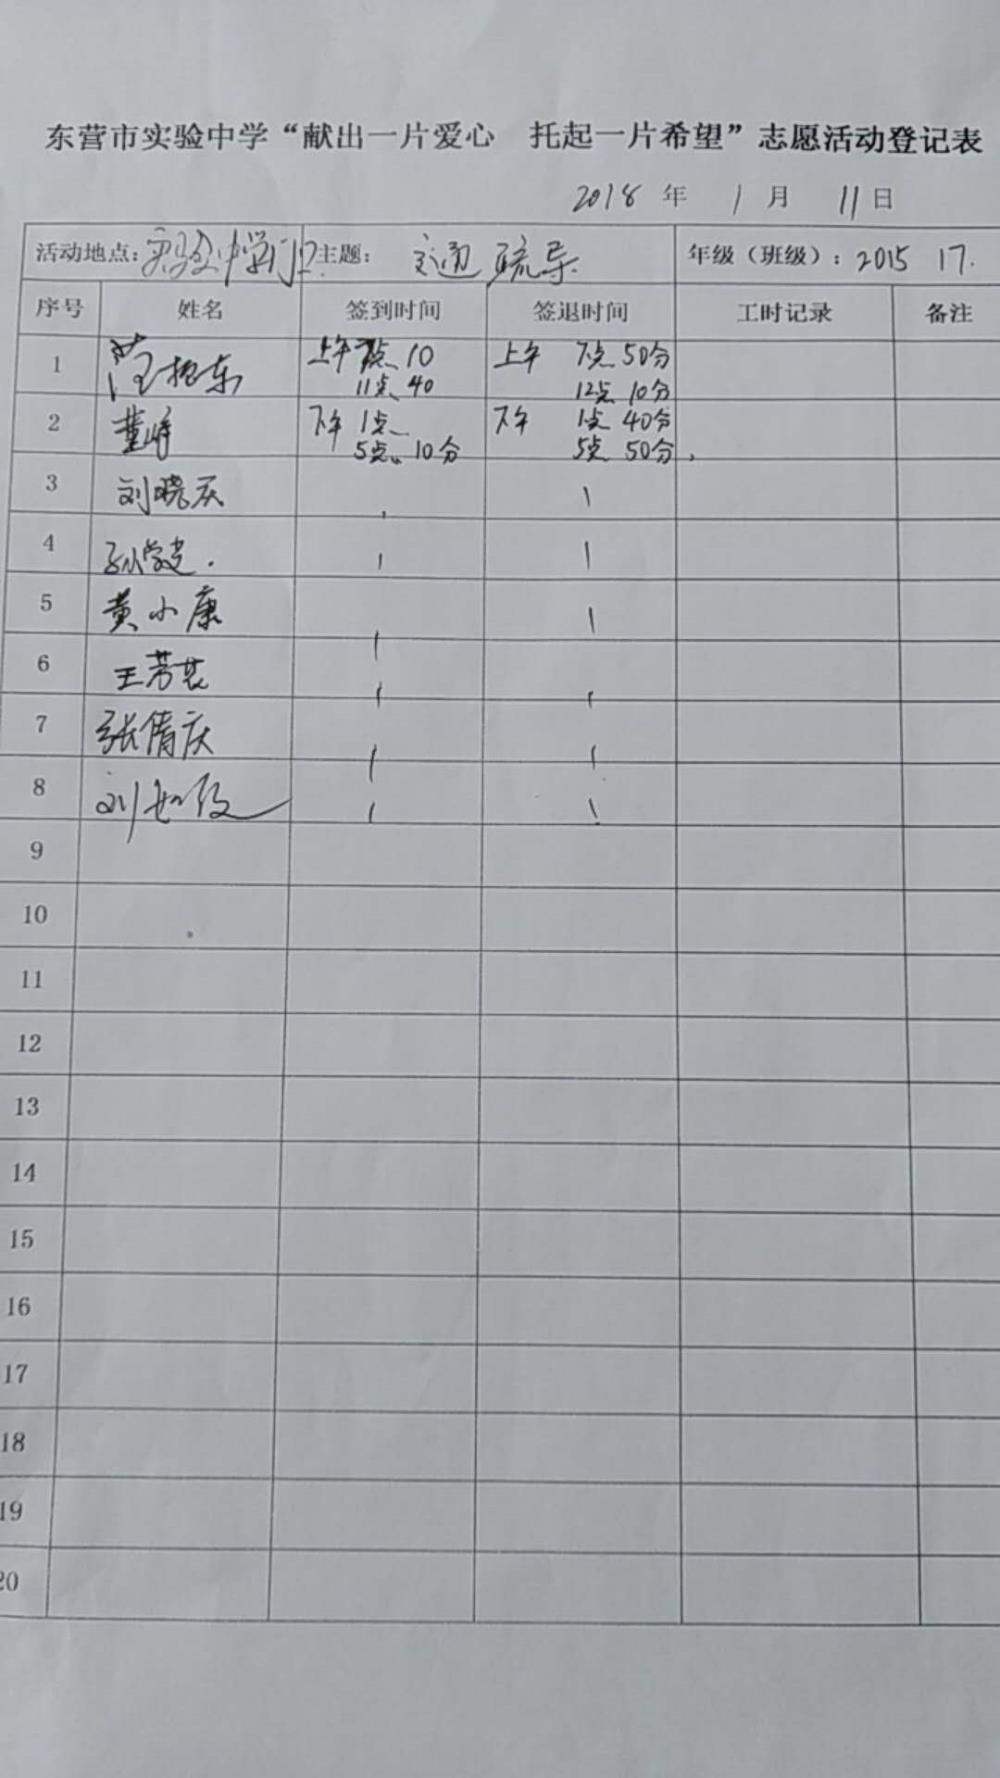 东营市实验中学“献出一片爱心 托起一片希望”志愿活动登记表
2018 年 1 月 11 日
活动地点：实验中学门口 主题： 交通疏导 年级（班级）：2015 17.
序号 姓名 签到时间 签退时间 工时记录 备注
1 范振东 上午 7点 10 上午 7点 50分
11点 40 12点 10分
2 董峰 下午 1点 下午 1点 40分
5点 10分 5点 50分
3 刘晓庆
4 孙学
5 黄小康
6 王芳
7 张倩庆
8 刘
9
10
11
12
13
14
15
16
17
18
19
20